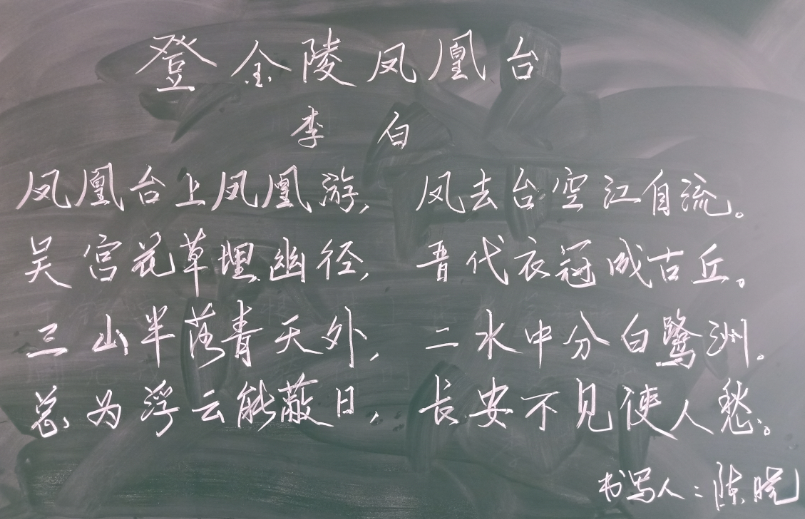 登金陵凤凰台
李白
凤凰台上凤凰游，凤去台空江自流。
吴宫花草埋幽径，晋代衣冠成古丘。
三山半落青天外，二水中分白鹭洲。
总为浮云能蔽日，长安不见使人愁。
书写人：陈晓